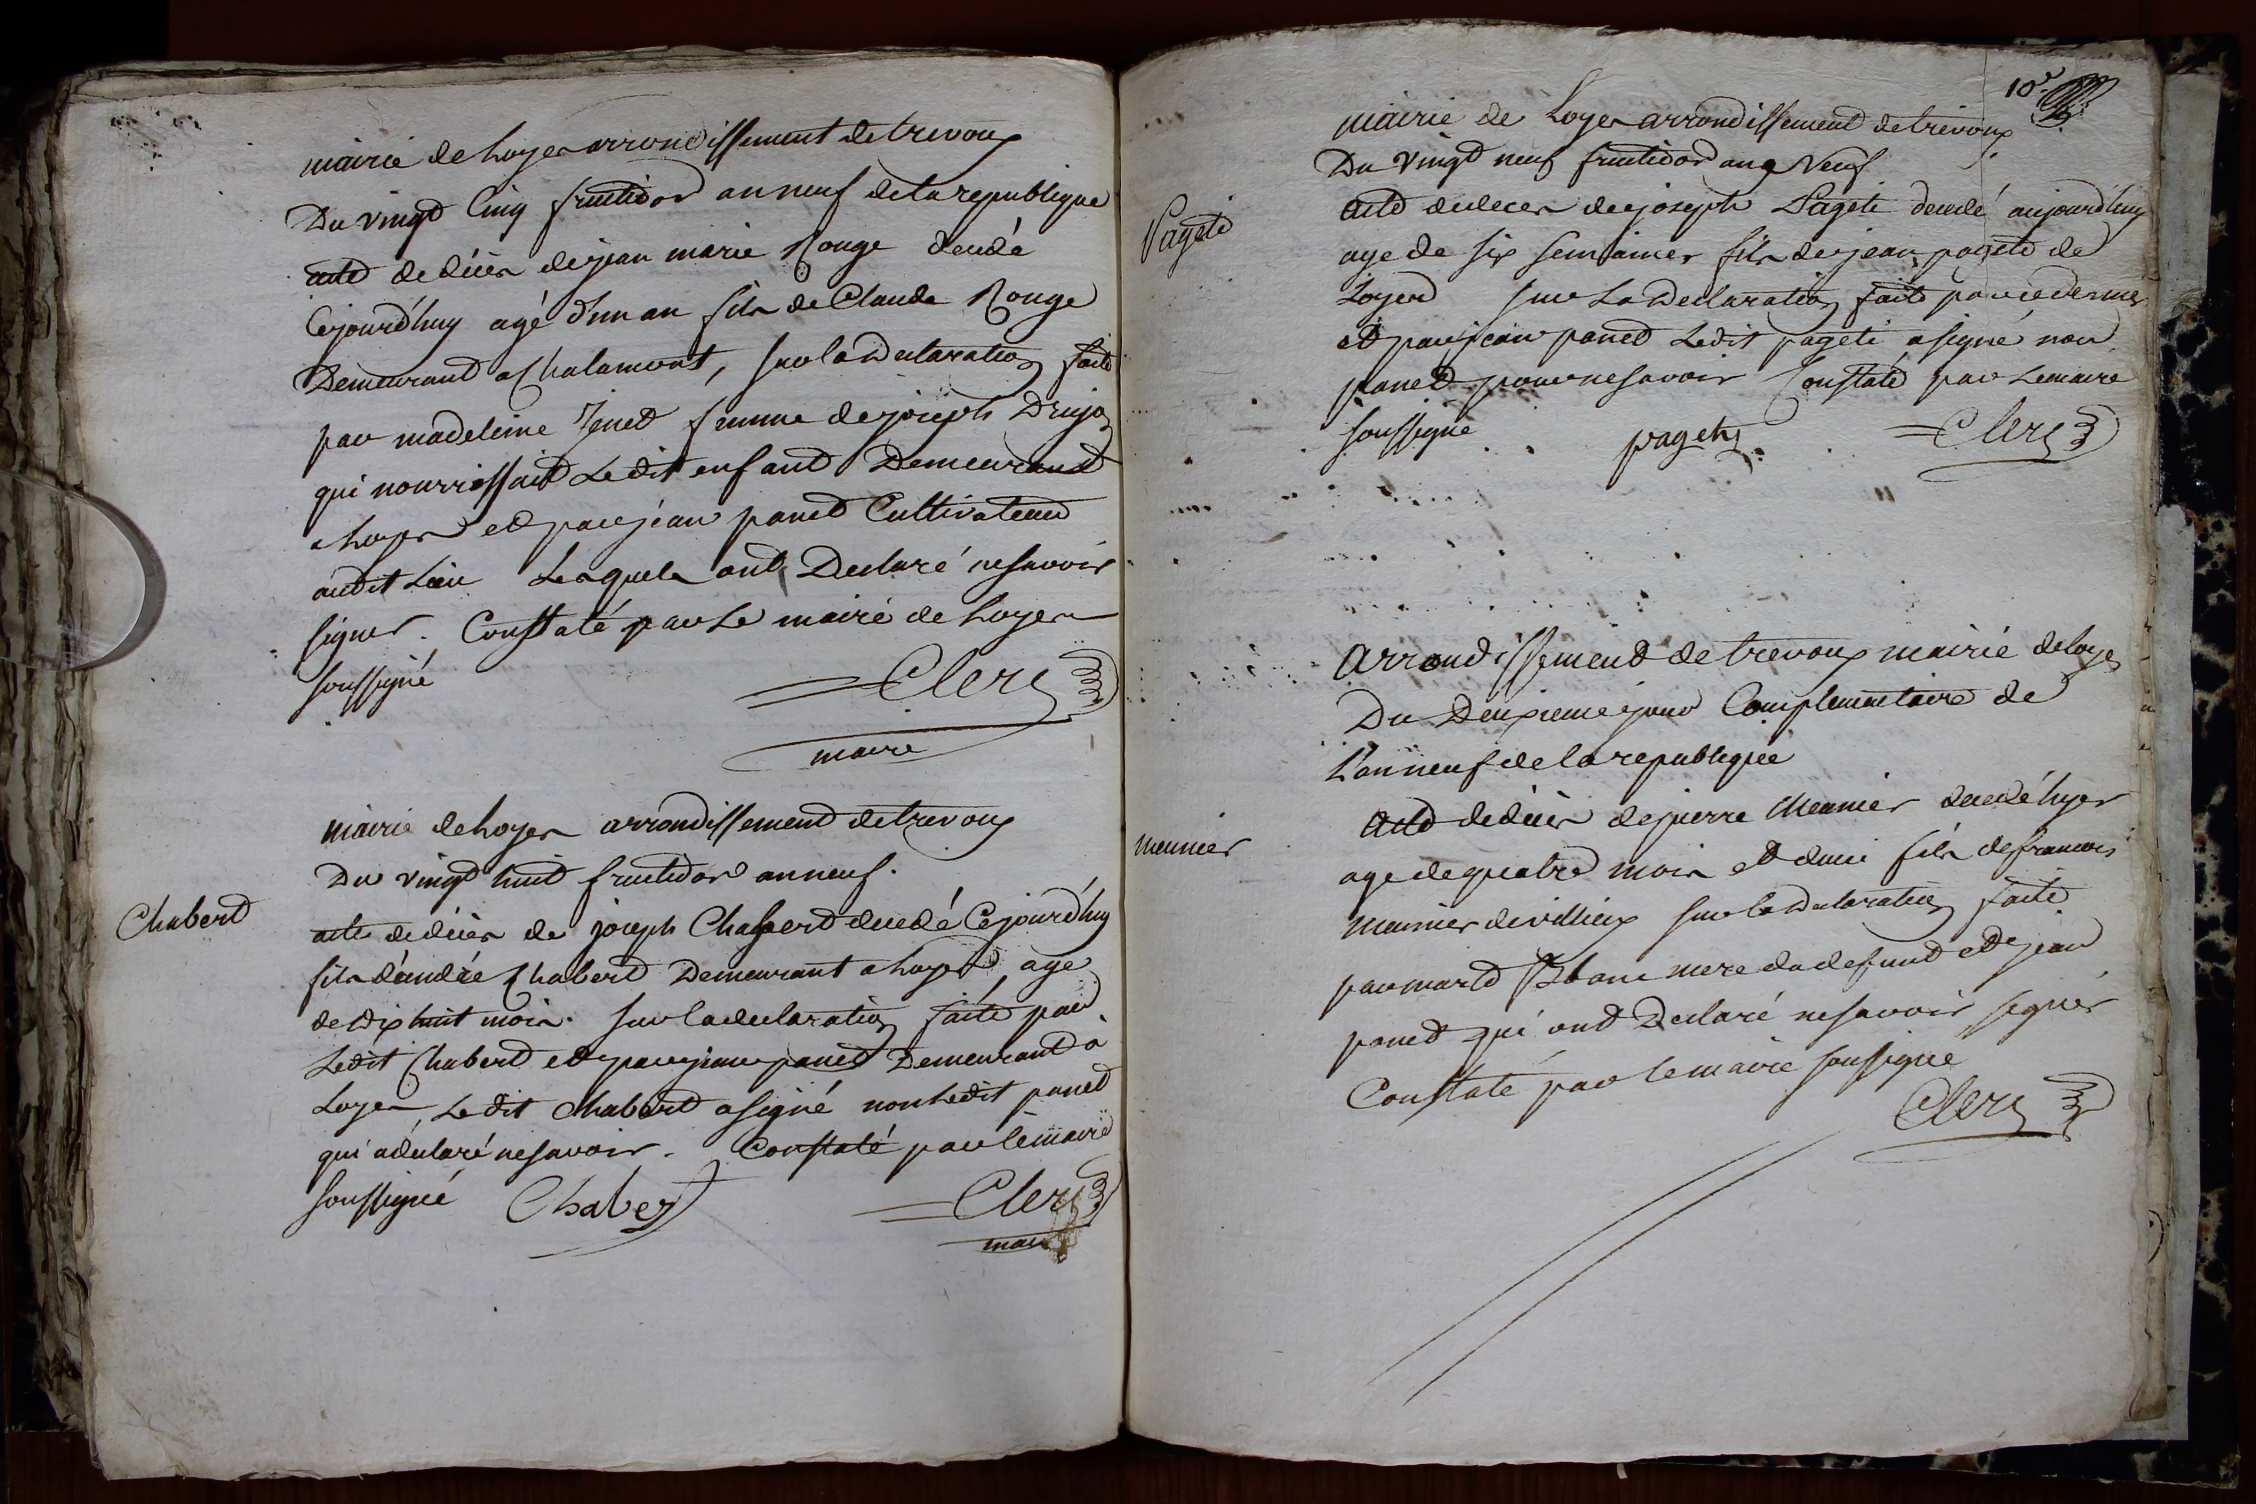 mairie de Loyes arrondissement de trevoux
Du vingt Cinq fructidor an neuf de la republique
acte de décès de jean marie Rouge decedé
Cejourd'huy agé d'un an fils de Claude Rouge
Demeurant a Chalamont, sur la declaration faite
par madeleine femme de joseph
qui nourrissait Ledit enfant Demeurant
a Loyes et par jean panet Cultivateur
audit Lieu Lesquels ont Declaré ne savoir
signer. Constaté par Le maire de Loyes
soussigné Clerc
maire
mairie de Loyes arrondissement de trevoux
Du vingt huit fructidor an neuf.
Chabert
acte de décès de joseph Chabert decedé Cejourd'huy
fils d'andré Chabert Demeurant a Loyes, age
de dix huit mois. sur la declaration faite par
Ledit Chabert et par jean panet Demeurant a
Loyes Ledit Chabert a signé non Ledit panet
qui a declaré ne savoir. Constaté par le maire
soussigné Chabert Clerc
maire
10e
mairie de Loyes arrondissement de trevoux
Du vingt neuf fructidor an 9 neuf
Pageté
acte de deces de joseph Pageti decedé aujourd'huy
age de six semaines fils de jean pageté de
Loyes sur La Declaration faite par ce dernier
et par jean panet Ledit pageti a signé non
panet pour ne savoir Constaté par Le maire
soussigné pagety Clerc
arrondissement de trevoux mairie de Loyes
Du Deuxieme jour Complementaire de
L'an neuf de la republique
meunier
acte de décès de pierre Meunier decedé hyer
age de quatre mois et demi fils de francois
meunier de villieux sur la declaration faite
par mere du defunt et jean
panet qui ont Declaré ne savoir signer
Constaté par le maire soussigné
Clerc